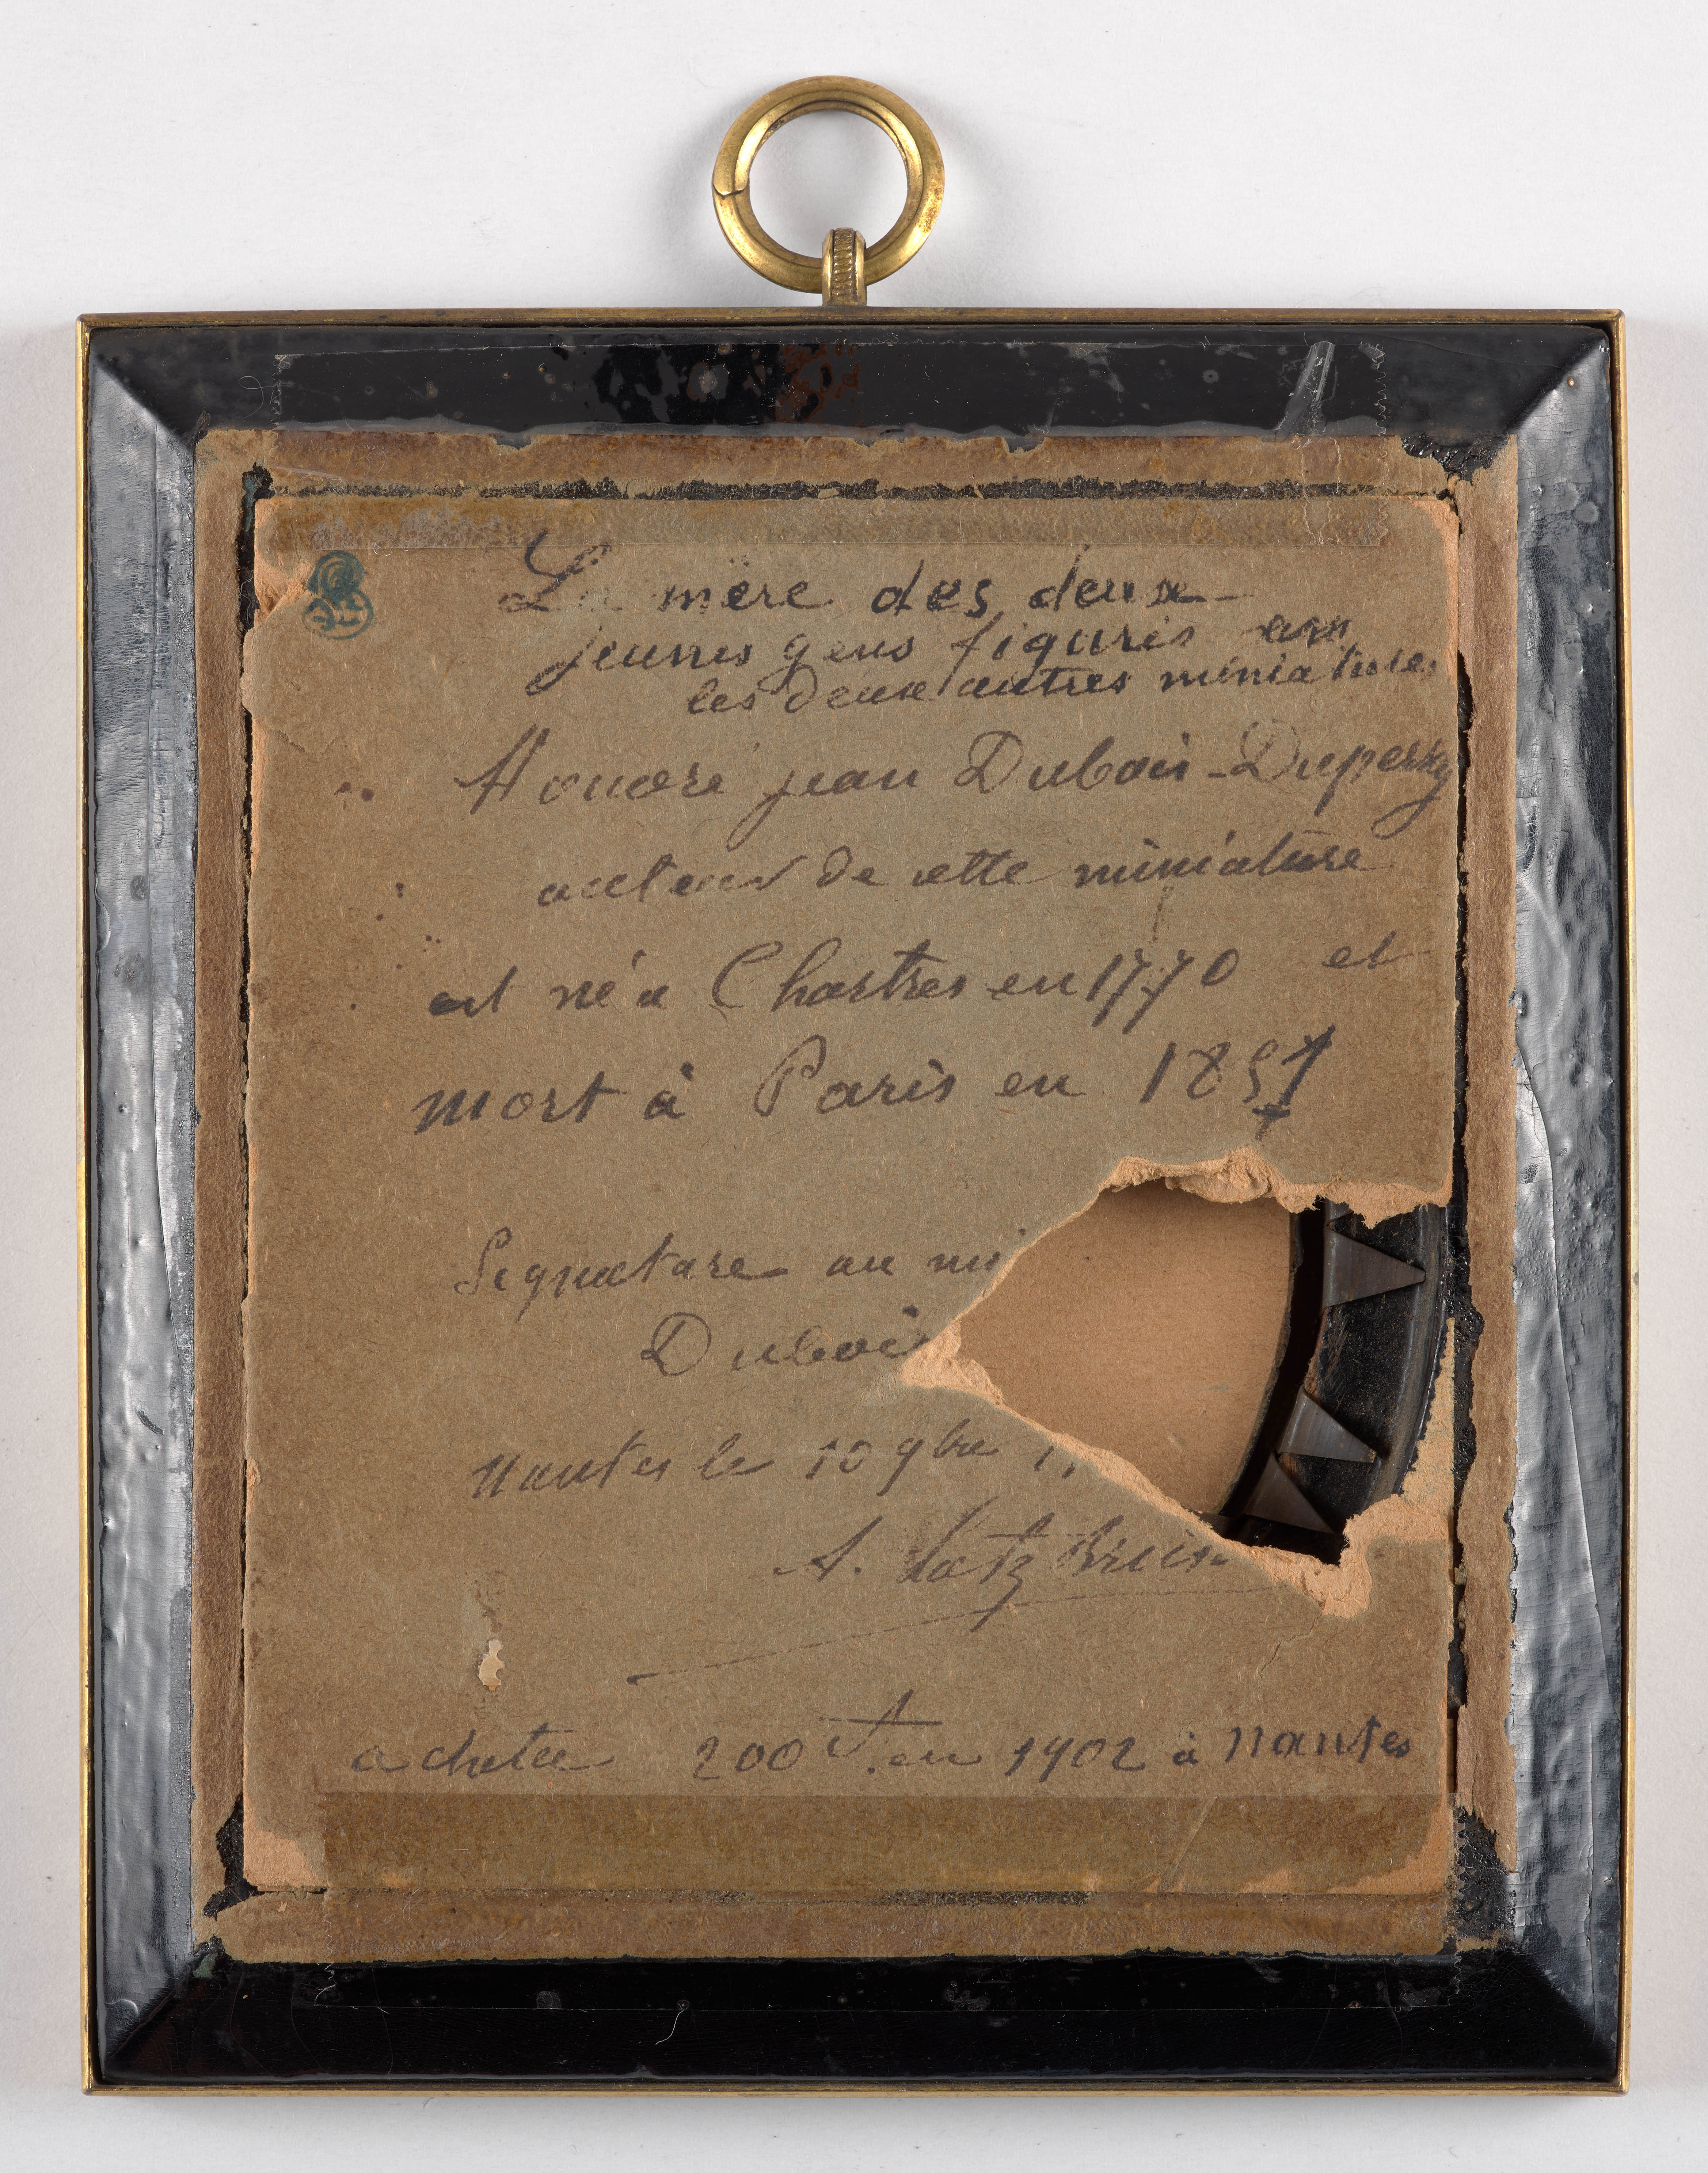 La mère des deux
jeunes gens figurés
les deux autres miniatures
Honoré jean Dubois-Duperray
auteur de cette miniature
est né à Chartres en 1770 et
mort à Paris en 1857
Signature au mi
Dubois
Nantes le 10 9bre 1
A.
achetée 200 f. en 1902 à Nantes